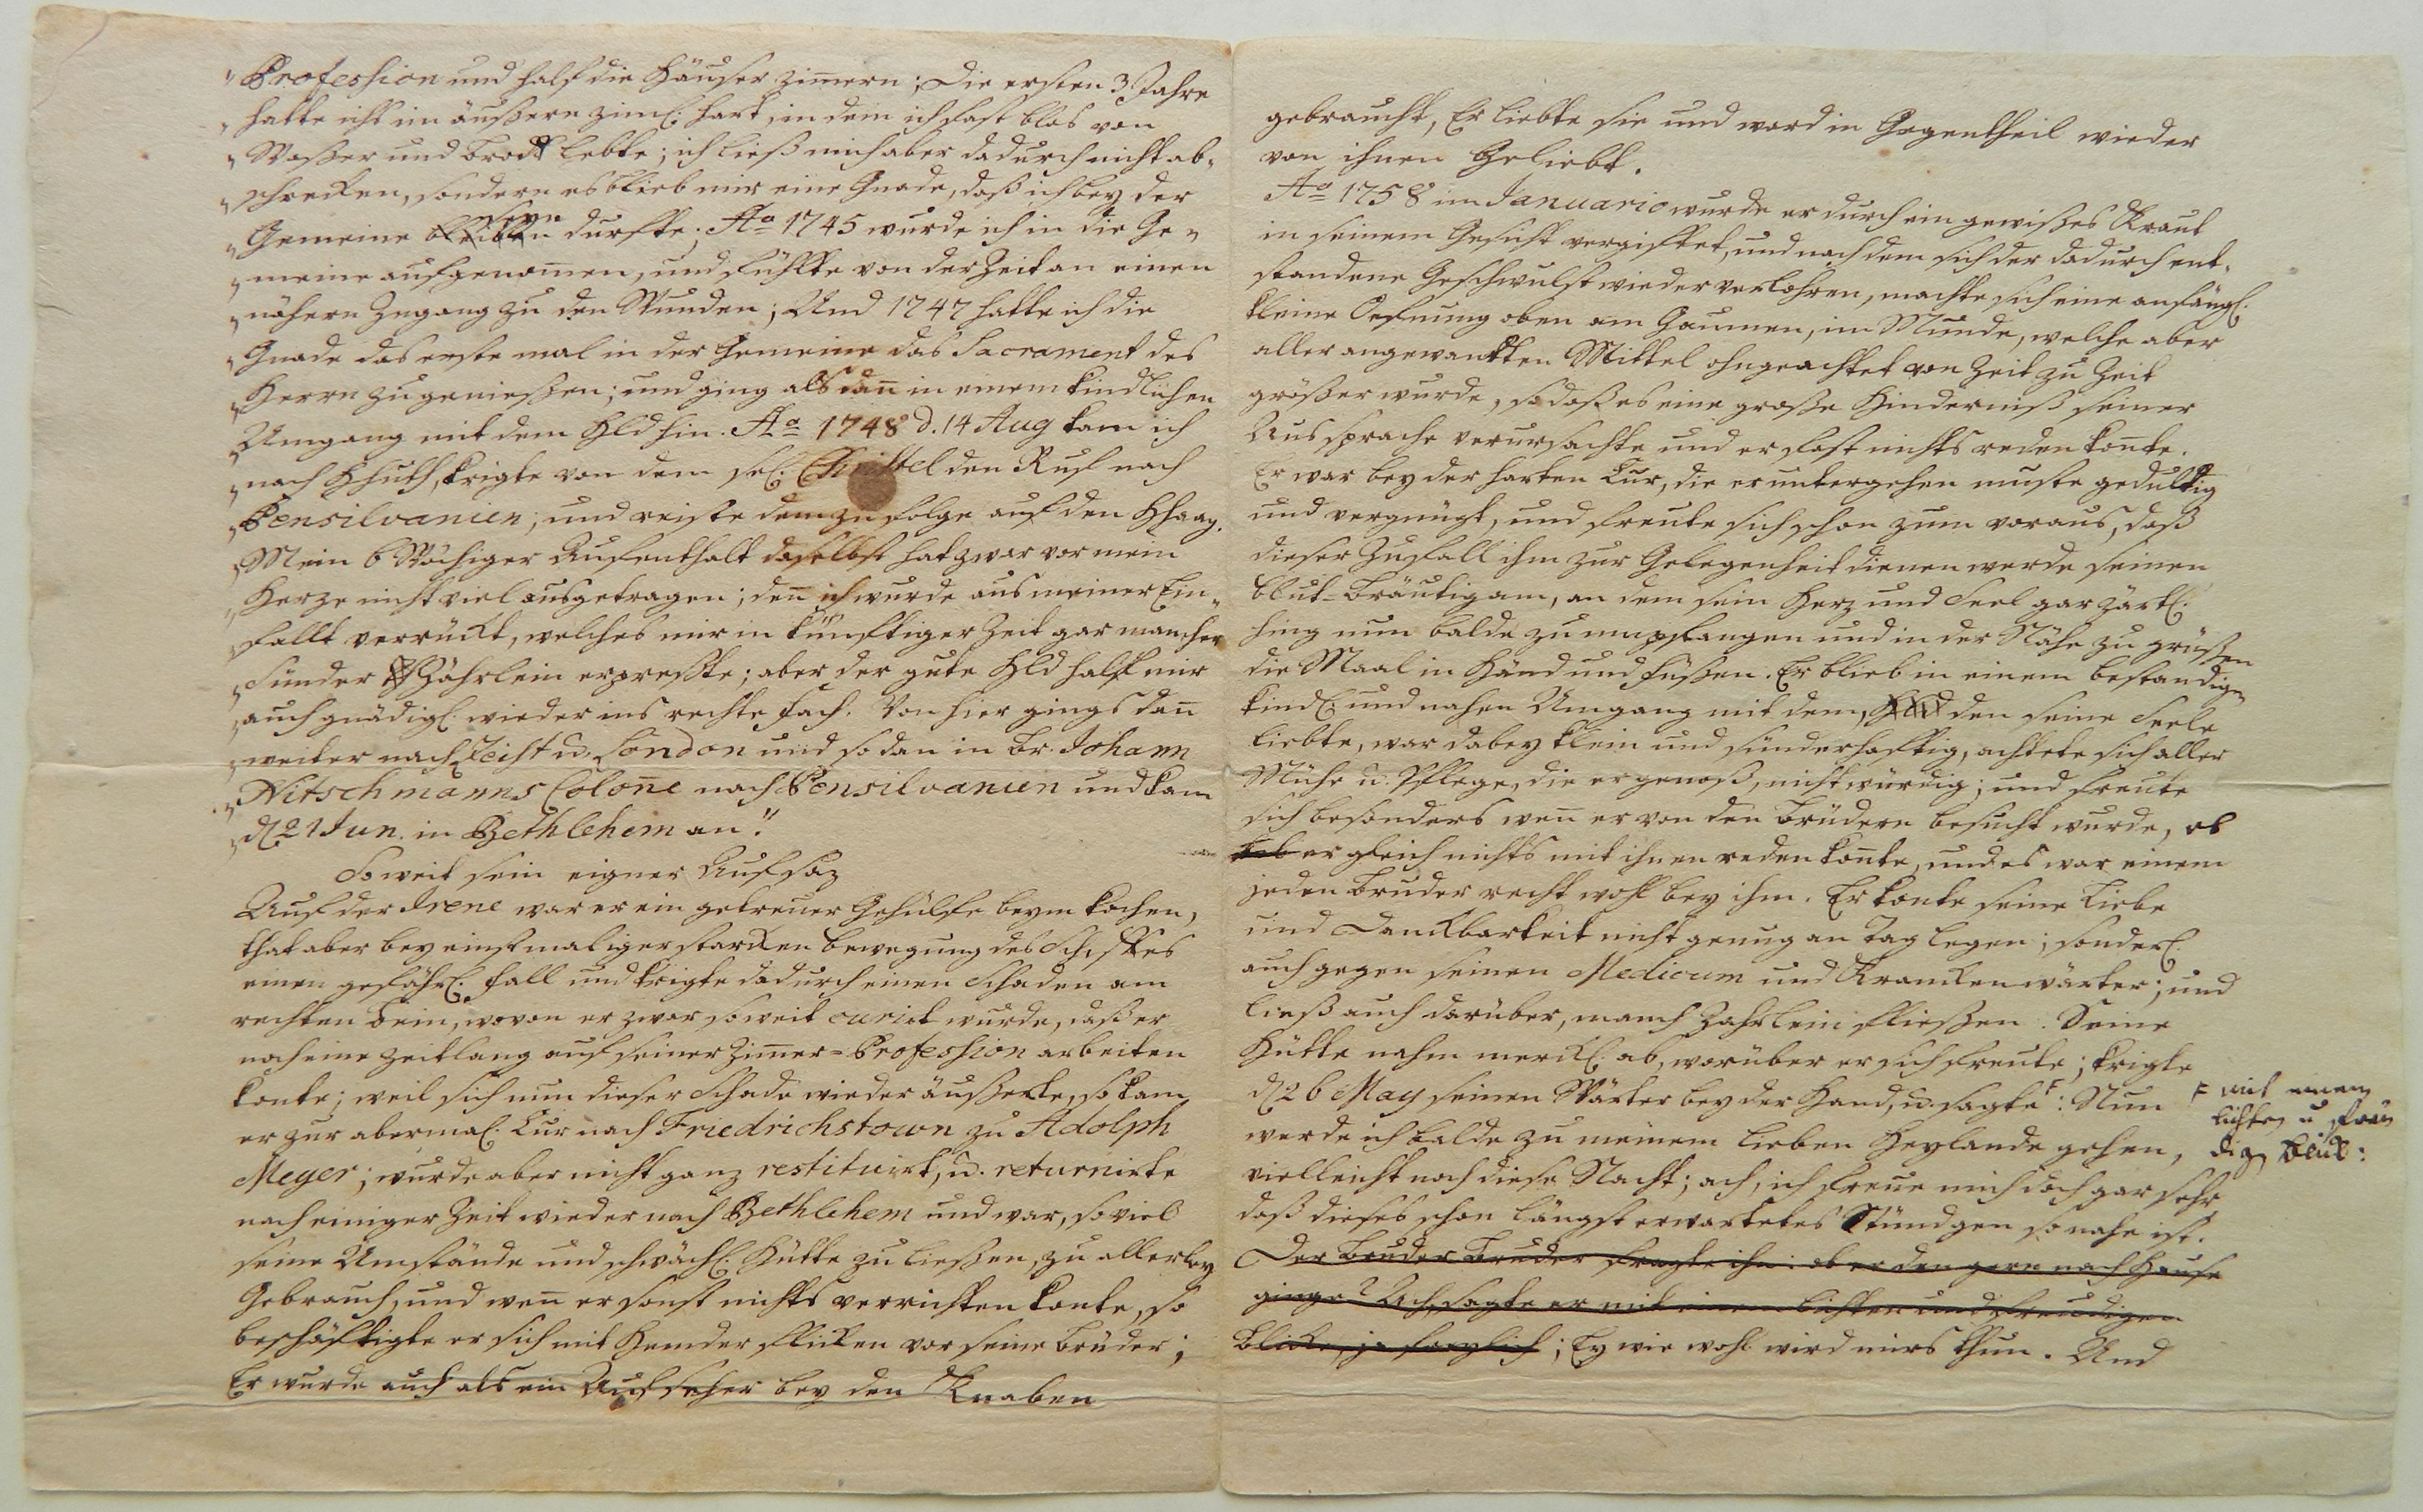 " Profession und half die Häuser zim̄ern; Die ersten 3 Jahre
" hatte ichs im äußern ziml. hart, in dem ich fast blos von
" Waßer und Brodt lebte; ich ließ mich aber dadurch nicht ab-
" schrecken, sondern es blieb mir eine Gnade, daß ich bey der
" Gemeine bleiben seyn durfte. Ao 1745 wurde ich in die Ge-
" meine aufgenom̄en, und fühlte von der Zeit an einen
" nähern Zugang zu den Wunden; Und 1747 hatte ich die
" Gnade das erste mal in der Gemeine das Sacrament des
" Herrn zu genießen; und ging als dan̄ in einem kindlichen
" Umgang mit dem Hld hin. Ao 1748 d. 14 Aug kam ich
" nach Hhuth, krigte von dem sel. Christel den Ruf nach
" Pensilvanien, und reiste dem zu folge auf den Hhaag.
" Mein 6 Wöchiger Aufenthalt daselbst hat zwar vor mein
" Herze nicht viel ausgetragen; den̄ ich wurde aus meiner Ein-
" falt verrückt, welches mir in künftiger Zeit gar manches
" Sünder Zährlein erpreßte; aber der gute Hld half mir
" auch gnädigl. wieder ins rechte Fach. Von hier gings dan̄
" weiter nach Zeist u. London und so dan in Br. Johann
" Nitschmanns Colon̄e nach Pensilvanien und kam
" d. 21 Jun. in Bethlehem an."
So weit sein eigner Aufsaz
Auf der Irene war er ein getreuer Gehülfe beym Kochen,
that aber bey einstmaliger starcken Bewegung des Schiffes
einen gefährl. Fall und krigte dadurch einen Schaden am
rechten Bein, wovon er zwar so weit curirt wurde, daß er
noch eine Zeitlang auf seiner Zim̄er-Profession arbeiten
konte; weil sich nun dieser Schade wieder äußerte, so kam
er zur abermal. Cur nach Friedrichstown zu Adolph
Meyer; wurde aber nicht ganz restituirt, u. returnirte
nach einiger Zeit wieder nach Bethlehem und war, so viel
seine Umstände und schwächl. Hütte zu ließen, zu allerley
Gebrauch, und wen̄ er sonst nichts verrichten konte, so
beschäftigte er sich mit Hemder flicken vor seine Brüder;
Er wurde auch als ein Aufseher bey den Knaben
gebraucht, Er liebte sie und ward in Gegentheil wieder
von ihnen Geliebt.
Ao 1758 im Januario wurde er durch ein gewißes Kraut
in seinem Gesicht vergiftet, und nach dem sich der dadurch ent-
standene Geschwulst wieder verlohren, machte sich eine anfängl.
kleine Oefnung oben am Gaumen, im Munde, welche aber
aller angewandten Mittel ohngeachtet von Zeit zu Zeit
größer wurde, so daß es eine große Hinderniß seiner
Aussprache verursachte und er fast nichts reden kon̄te.
Er war bey der harten Cur, die er untergehen muste gedultig
und vergnügt, und freute sich schon zum voraus, daß
dieser Zufall ihm zur Gelegenheit dienen werde seinen
Blut-Bräutigam, an dem sein Herz und Seel gar zärtl.
hing nun balde zu umpfangen und in der Nähe zu grüßen
die Maal in Händ und Füßen. Er blieb in einem beständigen
kindl. und nahen Umgang mit dem, Hld den seine Seele
liebte, war dabey klein und sünderhaftig, achtete sich aller
Mühe u. Pflege, die er genoß, nicht würdig; und freute
sich besonders wen̄ er von den Brüdern besucht wurde, ob
er gleich nichts mit ihnen reden kon̄te, und es war einem
jeden Bruder recht wohl bey ihm. Er konte seine Liebe
und Danckbarkeit nicht genug an Tag legen; sonderl.
auch gegen seinen Medicum und Krancken wärter; und
ließ auch darüber, manch Zährlein fließen. Seine
Hütte nahm merckl. ab, worüber er sich freute; krigte
d. 26 May seinen Wärter bey der Hand, u. sagte F: Nun
F mit einem
lichten u freu
digen Blick:
werde ich balde zu meinem lieben Heylande gehen,
vielleicht noch diese Nacht; ach, ich freue mich doch gar sehr,
daß dieses schon längst erwartetes Stündgen so nahe ist.
Der Bruder Bruder fragte ihn: ob er den gern nach Hause
ginge? Ach, sagte er mit einem lichten und freudigen
Blicke, ja freylich; Ey wie wohl wird mirs thun. Und